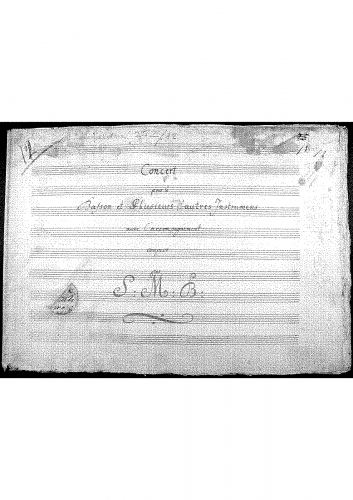 12
Concert
pour le
Basson et Plusieurs d'autres Instrumens
avec l'accompagnement
composé
par
S: M: B: